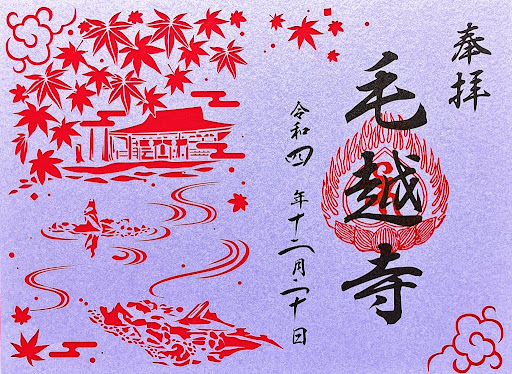 奉拝
毛越寺
令和四年十二月二十日